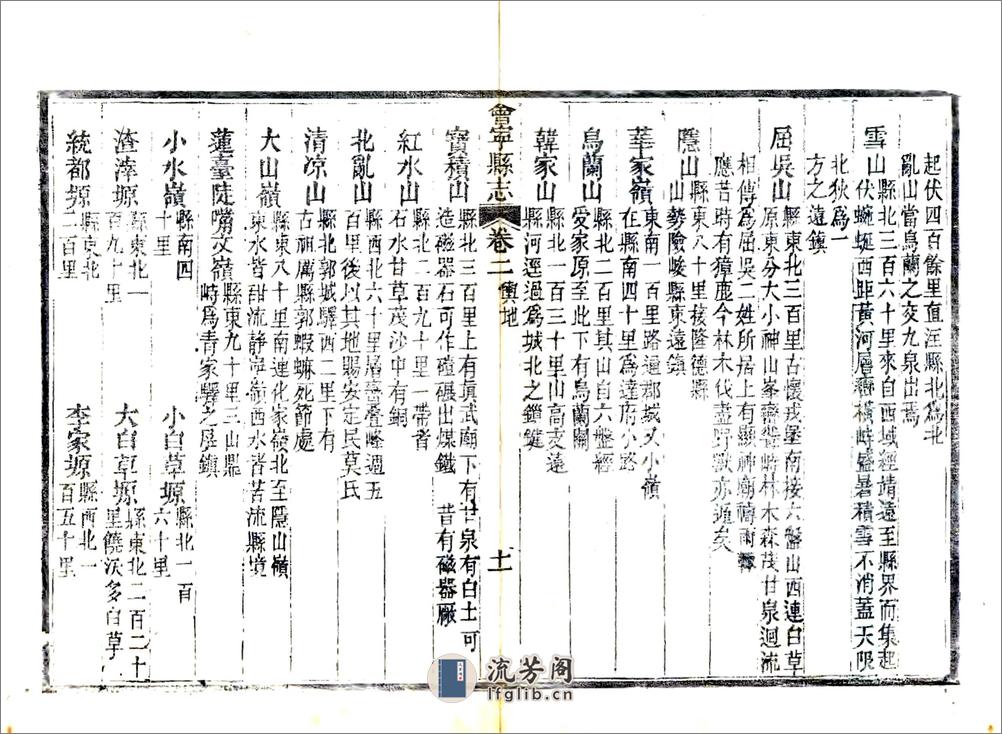 起伏四百餘里直注縣北為北
亂山當烏蘭之交九泉出焉
雪山
縣北三百六十里來自西域經靖遠至縣界而集起
伏蜿蜒西距黃河層巒橫峙盛暑積雪不消蓋天限
北狄為一
方之遠鎮
屈吳山
縣東北三百里古懷戎堡南接六盤山西連白草
原東分大小神山峯巒聳峙林木森茂甘泉迴流
相傳為屈吳二姓所居上有顯神廟禱雨
應昔時有獐鹿今林木伐盡野獸亦遁矣
隱山
縣東八十里接隆德縣
山勢險峻縣東遠鎮
華家嶺
東南一百里路通郡城又小嶺
在縣南四十里為達府小路
烏蘭山
縣北二百里其山自六盤經
愛家原至此下有烏蘭關
韓家山
縣北一百三十里山高
縣河逕過為城北之鎖鍵
會寧縣志
卷二
輿地
十一
寶積山
縣北三百里上有真武廟下有甘泉有白土可
造磁器石可作磑碾出煤鐵 昔有磁器厰
紅水山
縣北二百九十里一帶者
石水甘草茂沙中有銅
北亂山
縣西北六十里層巒疊峰週五
百里後以其地賜安定民莫氏
清凉山
縣北郭城驛西二里下有
古祖厲縣郭蝦蟆死節處
大山嶺
縣東八十里南連化家嶺北至隱山嶺
東水皆甜流靜寧嶺西水渚苦流縣境
蓮臺陡嘴交嶺
縣東九十里三山鼎
峙為青家驛之屏鎮
小水嶺
縣南四
十里
小白草塬
縣北一百
六十里
渣滓塬
縣東北一
百九十里
大白草塬
縣東北二百二十
里饒沃多白草
統都塬
縣東北
二百里
李家塬
縣西北一
百五十里
流芳阁
lfglib.cn